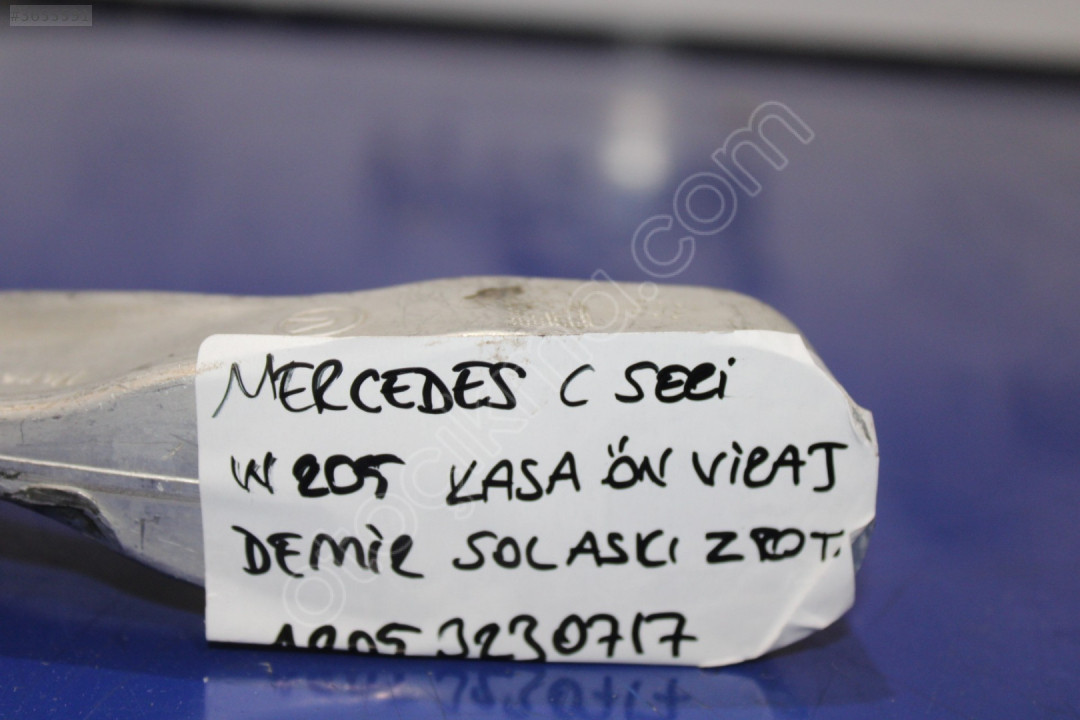 #3655391
MERCEDES C SERİ
W205 KASA ÖN VİRAJ
DEMİR SOL ASKI Z ROT.
A2053230717
otocikma.com